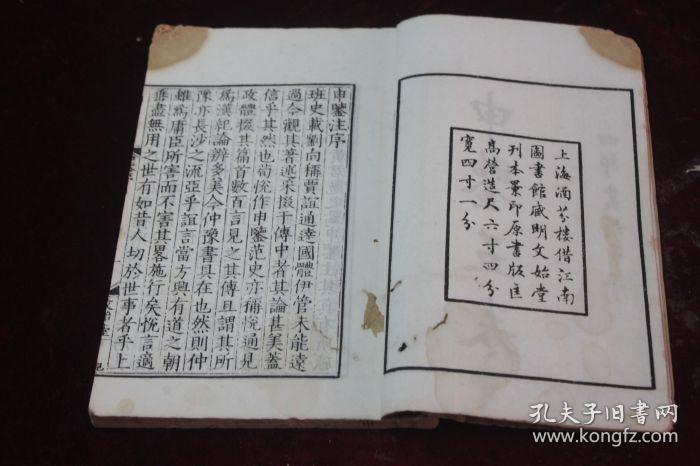 上海涵芬樓借江南
圖書館藏明文始堂
刊本景印原書版匡
高營造尺六寸四分
寬四寸一分
申鑒注序
班史載劉向稱賈誼通達國體伊管未能遠
過今觀其著述采掇于傳中者其論甚美蓋
信乎其然也荀悅作申鑒范史亦稱悅通見
政體掇其篇首數百言見之其傳且謂其所
爲漢紀論辨多美今仲豫書具在也然則仲
豫亦長沙之流亞乎誼言當方興有道之朝
雖爲庸臣所害而不害其畧施行矣悅言適
垂盡無用之世有如昔人切於世事者乎上
孔夫子旧书网
www.kongfz.com